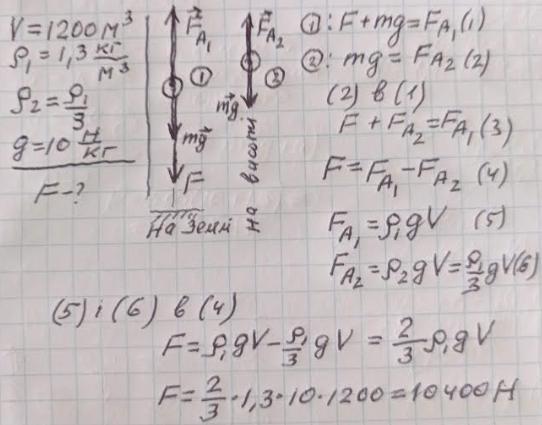 V=1200м³
ρ₁=1,3 кг/м³
ρ₂=ρ₁/3
g=10 Н/кг
F-?
F⃗A₁
①
mg⃗
F
На Землі
F⃗A₂
②
mg⃗
На висоті
①: F+mg=FA₁(1)
②: mg=FA₂(2)
(2) в (1)
F+FA₂=FA₁(3)
F=FA₁-FA₂ (4)
FA₁=ρ₁gV (5)
FA₂=ρ₂gV=ρ₁/3 gV(6)
(5) і (6) в (4)
F=ρ₁gV-ρ₁/3 gV = 2/3 ρ₁gV
F=2/3·1,3·10·1200=10400Н